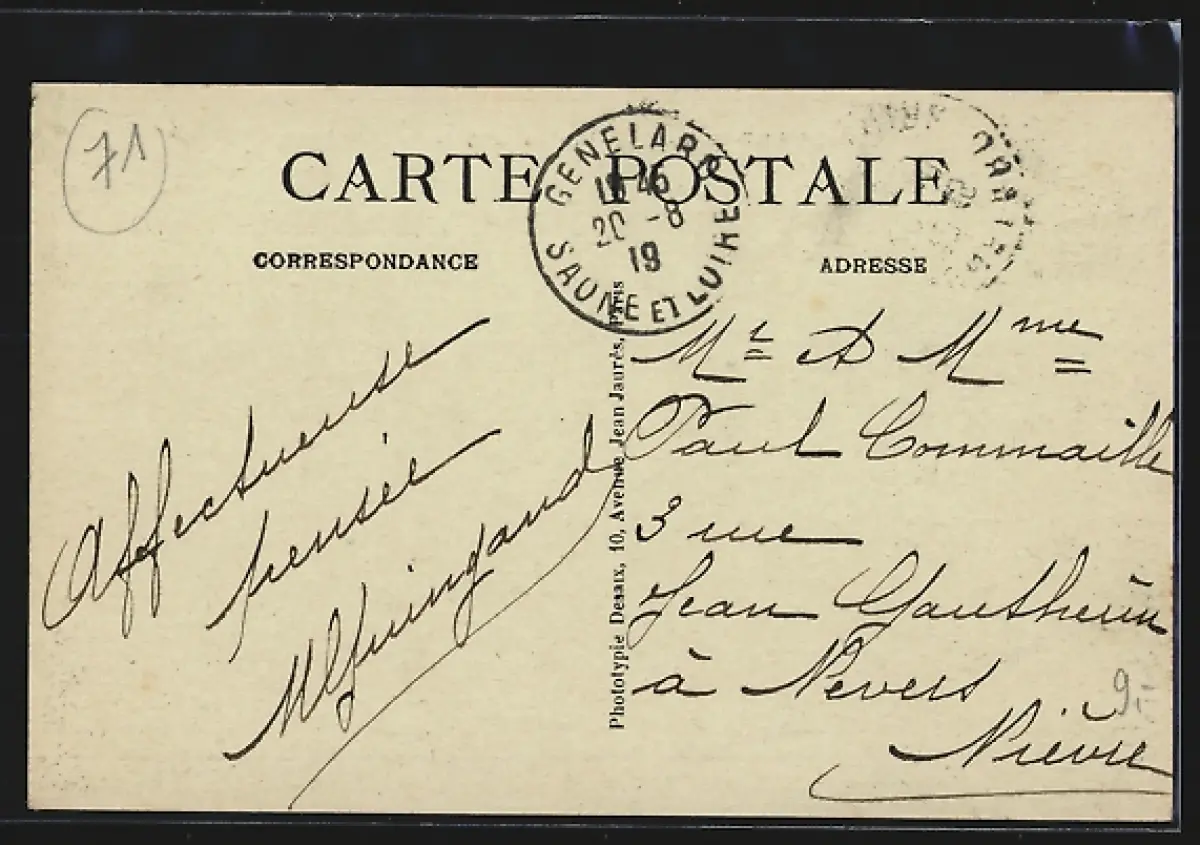 71
CARTE POSTALE
GENELARD
20 -8
19
SAONE ET LOIRE
CORRESPONDANCE
ADRESSE
Affectueuse
pensée
Phototypie Desaix, 10, Avenue Jean Jaurès, Paris
Mr & Mme
Paul Commaille
3 rue
Jean Gautherin
à Nevers
Nièvre
9.-